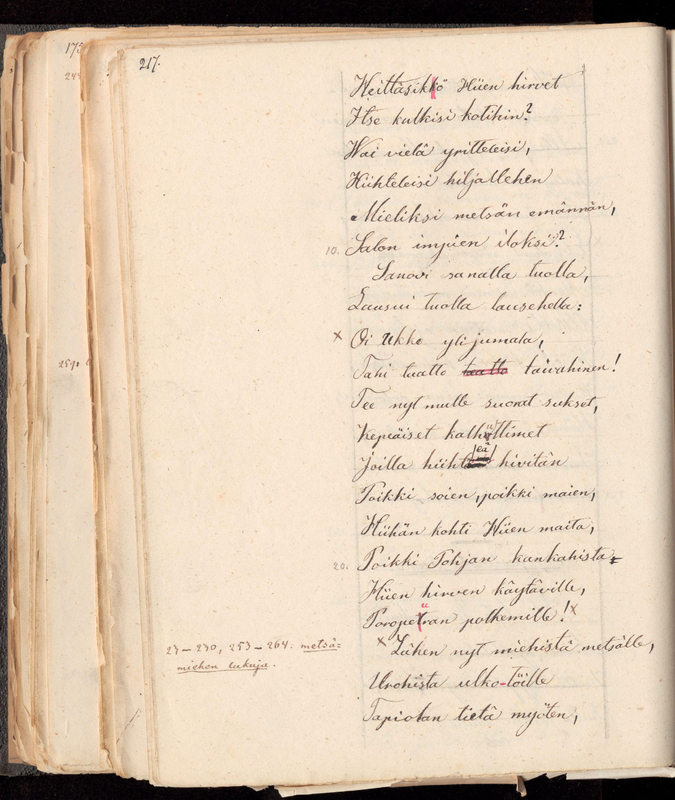 217.
Heittäsikkö Hiien hirvet
Itse kulkisi kotihin?
Wai vielä yritteleisi,
Hiihteleisi hiljallehen
Mieliksi metsän emännän,
10. Salon impiien iloksi?
Sanovi sanalla tuolla,
Lausui tuolla lausehella:
x Oi Ukko ylijumala,
Tahi taatto taatto taivahinen!
Tee nyt mulle suorat sukset,
Kepeäiset kalhuttimet
Joilla hiihteä hivitän
Poikki soien, poikki maien,
Hiihän kohti Hiien maita,
20. Poikki Pohjan kankahista
Hiien hirven käytäville,
Poropeuran polkemille! x
x Lähen nyt miehistä metsälle,
Urohista ulko-töille
Tapiolan tietä myöten,
27–230, 253–264: metsä=
miehen lukuja.
175
259